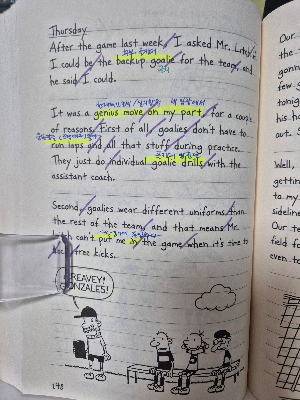 Thursday
After the game last week, I asked Mr. Litch if
I could be the backup goalie for the team, and
he said I could.
It was a genius move on my part, for a couple
of reasons. First of all, goalies don't have to
run laps and all that stuff during practice.
They just do individual goalie drills with the
assistant coach.
Second, goalies wear different uniforms than
the rest of the team, and that means Mr.
Litch can't put me in the game when it's time to
free kicks.
GREAVEY!
GONZALES!
178
Our
the
gonn
few
tonig
his h
out.
Well,
gettin
to my
sideline
Our te
field fo
even to